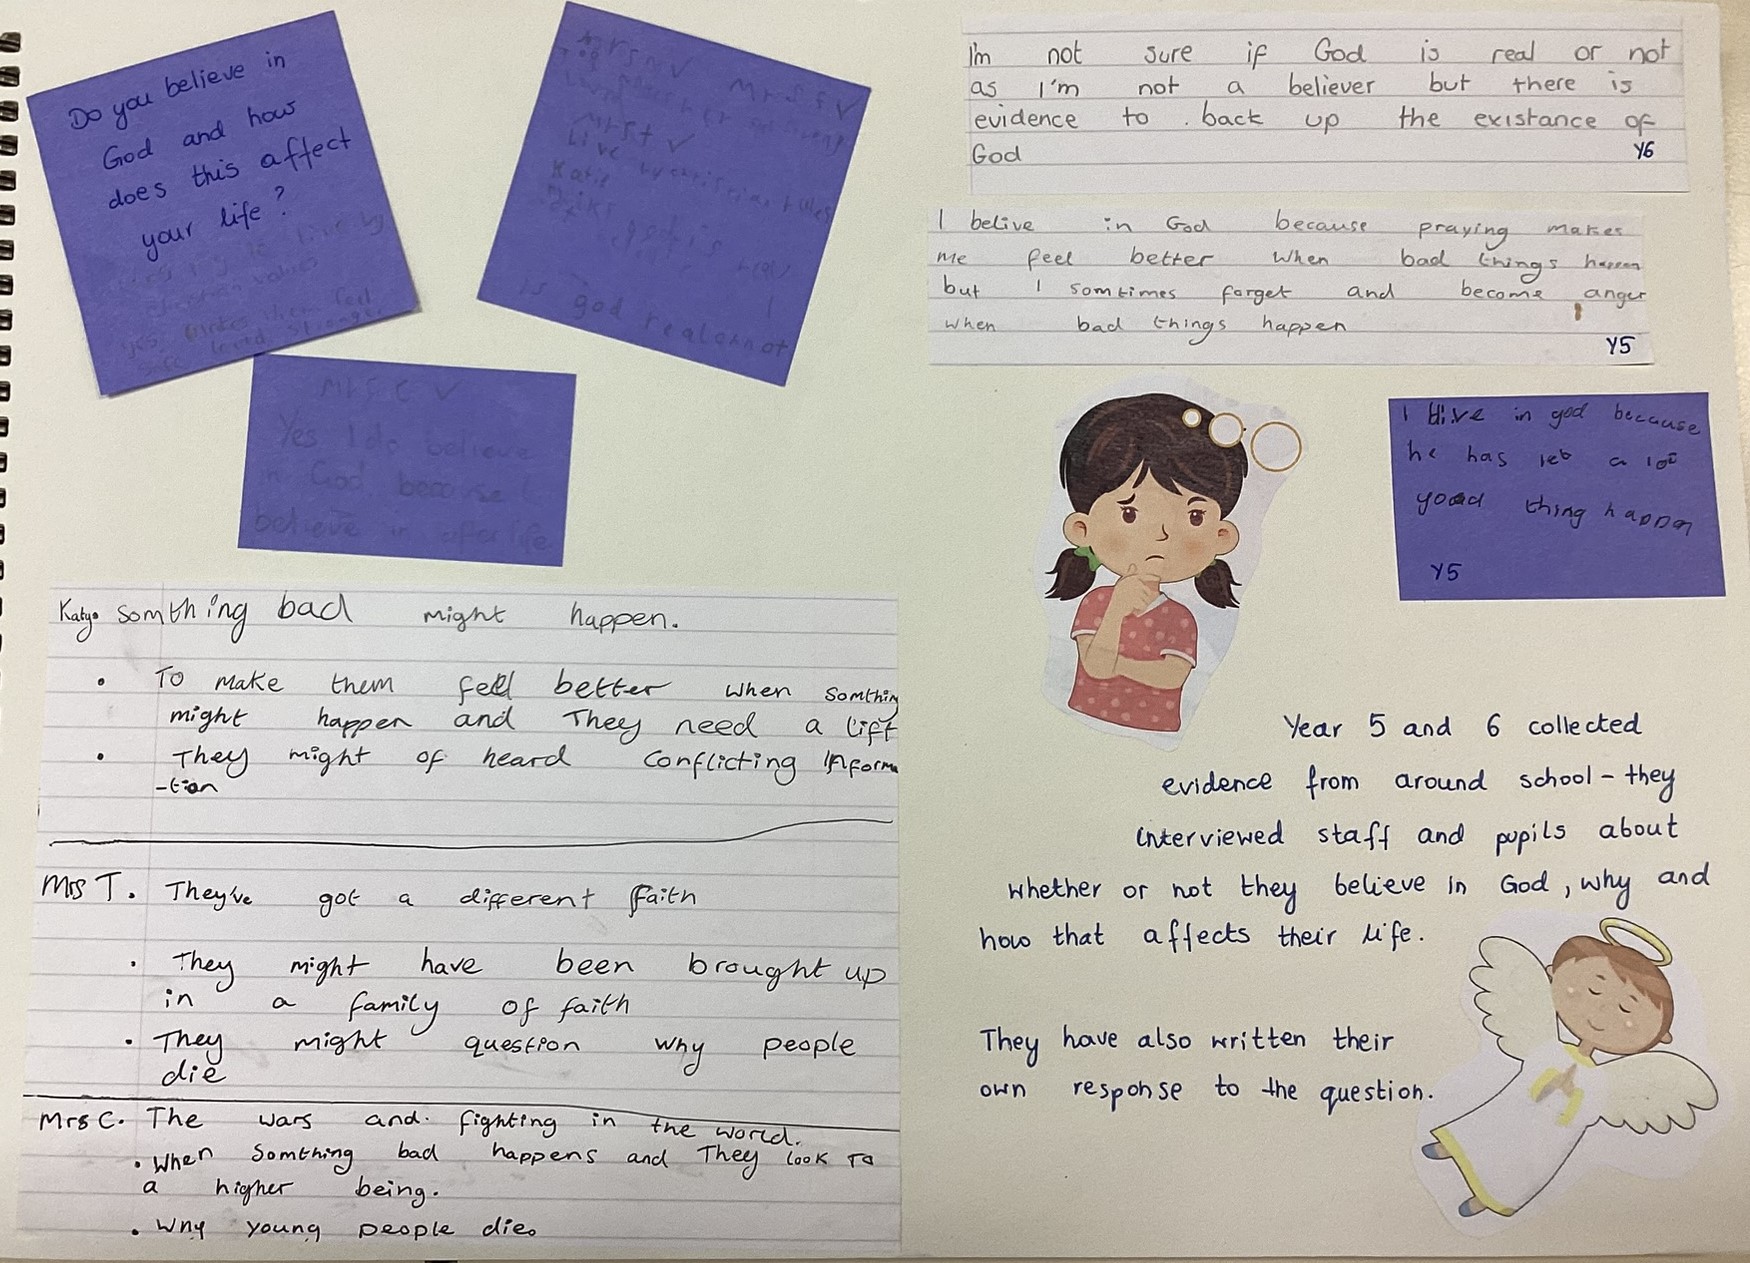 Do you believe in
God and how
does this affect
your life?
live by
christian values
yes, makes them feel
safe loved stronger
Mrs F ✓
Mrs t ✓
Live by christian rules
is god real or not
Mrs C ✓
Yes I do believe
in God because I
believe in after life
Katy• somthing bad might happen.
• To make them feel better when somthing
might happen and They need a lift
• They might of heard conflicting informa
-tion
Mrs T. They've got a different faith
• They might have been brought up
in a family of faith
• They might question why people
die
Mrs C. The wars and fighting in the world.
• When somthing bad happens and They look To
a higher being.
• Why young people die.
I'm not sure if God is real or not
as I'm not a believer but there is
evidence to back up the existance of
God Y6
I belive in God because praying makes
me feel better when bad things happen
but I somtimes forget and become anger
when bad things happen
Y5
I in god because
he has let a lot
good thing happen
Y5
Year 5 and 6 collected
evidence from around school - they
interviewed staff and pupils about
whether or not they believe in God, why and
how that affects their life.
They have also written their
own response to the question.